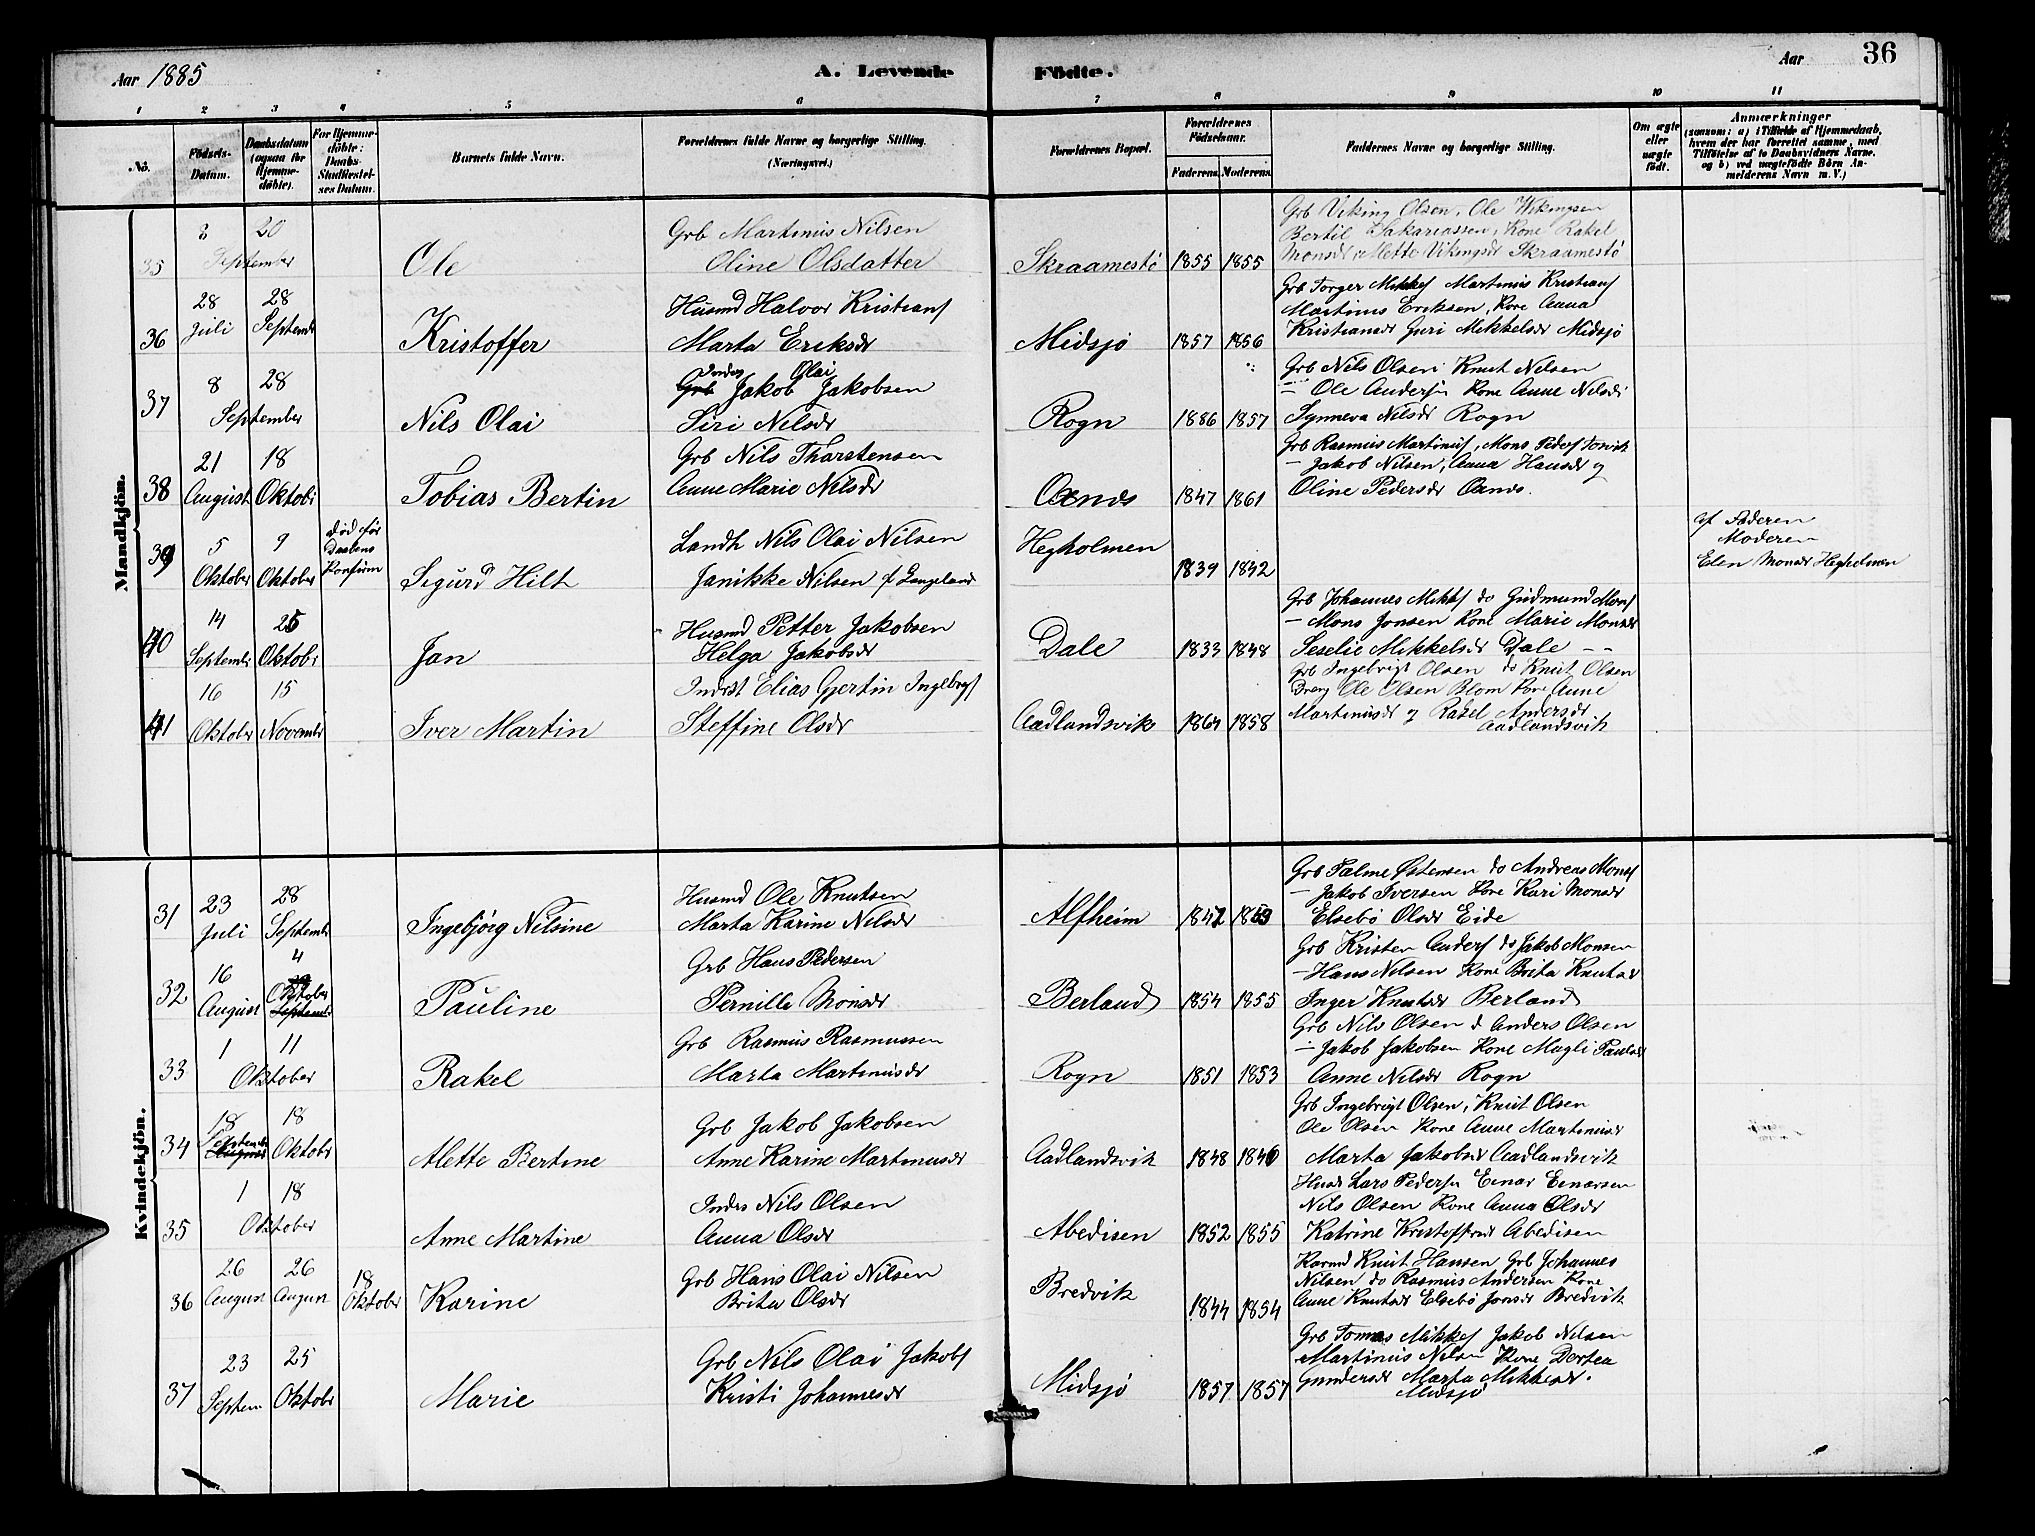 Aar 1885
A. Levende
Födte.
Aar
36
1 2 3 4 5 6 7 8 9 10 11
No.
Födsels-Datum.
Daabsdatum (ogsaa for Hjemme-döbte).
For Hjemme-döbte: Daabs-Stadfæstel-ses Datum.
Barnets fulde Navn.
Forældrenes fulde Navne og borgerlige Stilling.
(Næringsvei.)
Forældrenes Bopæl.
Forældrenes Födselsaar.
Faderens. Moderens.
Faddernes Navne og borgerlige Stilling.
Om ægte eller uægte födt.
Anmærkninger
(saasom: a) i Tilfælde af Hjemmedaab, hvem der har forrettet samme, med Tilföielse af to Daabsvidners Navne, og b) ved uægtefödte Börn An-melderens Navn m. V.)
Mandkjön.
35
20
September
Ole
Grb Martinus Nilsen
Oline Olsdatter
Skraamestö
1855 1855
Grb Viking Olsen, Ole Vikingsen
Bertil Zakariassen, Kone Rakel
Monsdr, Mette Vikingsdr Skraamestö
36
28 Juli
28 Septembr
Kristoffer
Husmd Halvor Kristians
Marta Eriksdr
Midsjö
1857 1856
Grb Torger Mikkels Martinus Kristians
Martinus Eriksen, Kone Anna
Kristiansdr Guri Mikkelsdr Midsjö
37
8 28
September
Nils Olai
Grb Jakob Olai Jakobsen
Siri Nilsdr
Rogn
1886 1857
Grb Nils Olsen Knut Nilsen
— Ole Andersen Kone Anne Nilsdr
Synneva Nilsdr Rogn
38
21 August
18 Oktobr
Tobias Bertin
Grb Nils Thorstensen
Anne Marie Nilsdr
1847 1861
Grb Rasmus Martinus, Mons Peders
— Jakob Nilsen, Anna Hansdr og
Oline Pedersdr
39
5 Oktober
9 Oktober
död før Daabens
Sigurd Hilt
Landh Nils Olai Nilsen
Janikke Nilsen f Langeland
Hegholmen
1839 1842
af Faderen
Moderen
Elen Monsdr Hegholmen
40
14 Septembr
25 Oktobr
Jan
Husmd Petter Jakobsen
Helga Jakobsdr
Dale
1833 1848
Grb Johannes Mikkels do Gudmund Mons
— Mons Jonsen Kone Marie Monsdr
Seselie Mikkelsdr Dale
41
16 Oktober
15 Novembr
Iver Martin
Inderst Elias Gjertin Ingebrigts
Steffine Olsdr
Aadlandsvik
1864 1858
Grb Ingebrigt Olsen do Knut Olsen
Ole Olsen Blom Kone Anne
Martinusdr og Rakel Andersdr
Aadlandsvik
Kvindekjön.
31
23 Juli
28 Septembr
Ingebjörg Nilsine
Husmd Ole Knutsen
Marta Karine Nilsdr
Alfheim
1842 1853
Grb Østensen do Andreas Mons
— Jakob Iversen Kone Kari Monsdr
Elsebö Olsdr Eide
32
16 August
4 Oktober
Septembr
Pauline
Grb Hans Pedersen
Pernille Monsdr
Berland
1854 1855
Grb Kristen Anders do Jakob Monsen
— Hans Nilsen Kone Brita Knutsdr
Inger Knutsdr Berland
33
1 11
Oktober
Rakel
Grb Rasmus Rasmussen
Marta Martinusdr
Rogn
1851 1853
Grb Nils Olsen d Anders Olsen
— Jakob Jakobsen Kone Magli Paulsdr
Anne Nilsdr Rogn
34
18 Septembr
August
18 Oktobr
Alette Bertine
Grb Jakob Jakobsen
Anne Karine Martinusdr
Aadlandsvik
1848 1846
Grb Ingebrigt Olsen, Knut Olsen
Ole Olsen Kone Anne Martinusdr
Marta Jakobsdr Aadlandsvik
35
1 18
Oktober
Anne Martine
Inders Nils Olsen
Anna Olsdr
Abedisen
1852 1855
Husm Lars Pedersen Einar Einarsen
Nils Olsen Kone Anna Olsdr
Katrine Kristoffersdr Abedisen
36
26 August
26 August
18 Oktober
Karine
Grb Hans Olai Nilsen
Brita Olsdr
Bredvik
1844 1854
Knut Hansen Grb Johannes
Nilsen do Rasmus Andersen Kone
Anne Knutsdr Elsebö Jonsdr Bredvik
37
23 Septem
25 Oktobr
Marie
Grb Nils Olai Jakobs
Kristi Johannesdr
Midsjö
1857 1857
Grb Tomas Mikkels Jakob Nilsen
Martinus Nilsen Kone Dortea
Gundersdr Marta Mikkelsdr
Midsjö